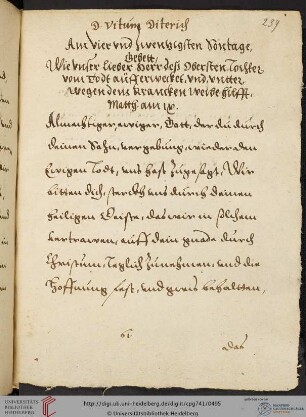 D. Vitum Diterich
239
Am vier vnd zwentzigsten Sontage,
Gebett,
Wie vnser lieber Herr deß Obersten Tochter
vom Todt aufferwecket, vnd vntter
wegen dem krancken Weibe hilfft.
Matth: am ix.
Almechtiger, ewiger, Gott, der du durch
deinen Sohn, vergebung, wieder den
ewigen Todt, vns hast zugesagt, Wir
bitten dich, sterck vns durch deinen
heiligen Geiste, das wir in solchem
vertrawen, auff dein gnade durch
Christum, teglich zunehmen, vnd die
Hoffnung fest, vnd gewis behaltten,
das
http://digi.ub.uni-heidelberg.de/diglit/cpg741/0495
© Universitätsbibliothek Heidelberg
UNIVERSITÄTS-
BIBLIOTHEK
HEIDELBERG